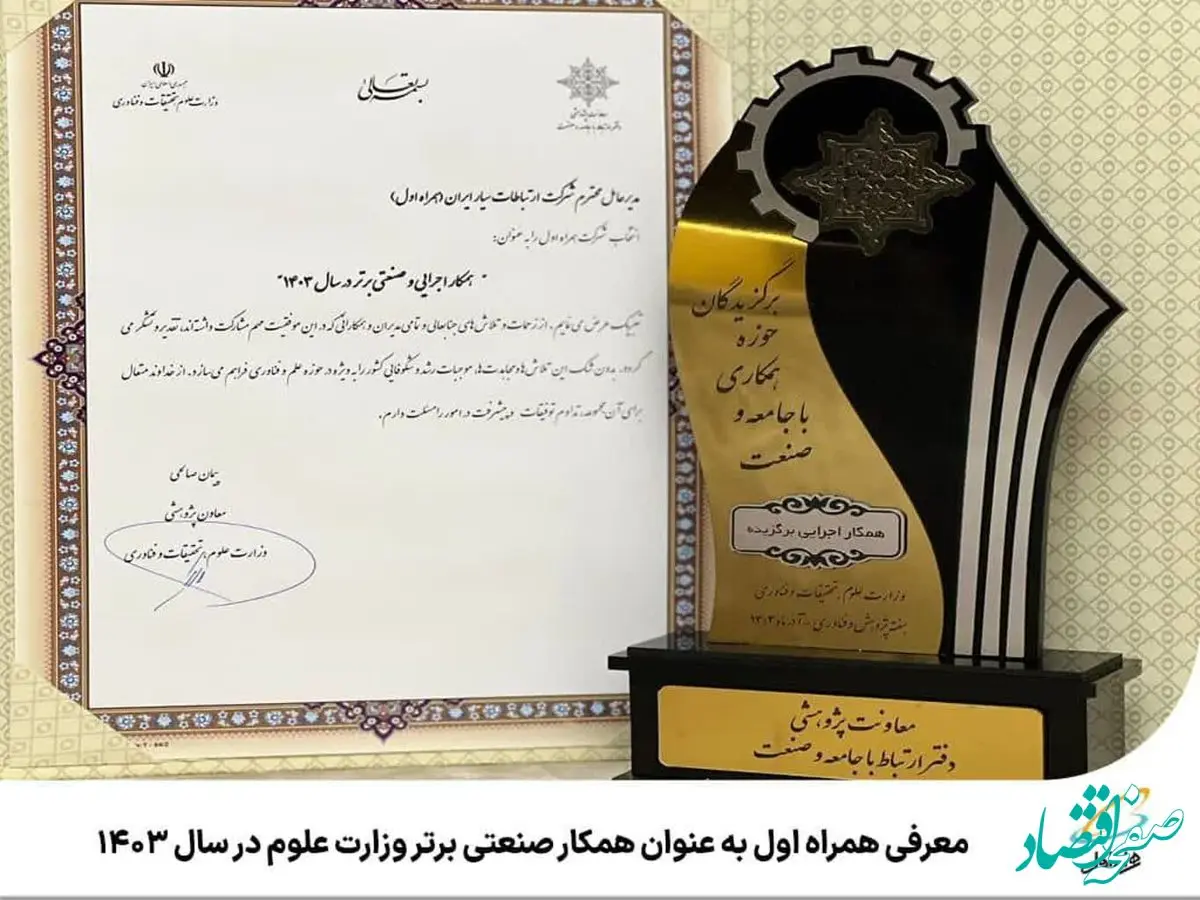 بسمه تعالی
جمهوری اسلامی ایران
وزارت علوم، تحقیقات و فناوری
معاونت پژوهشی
دفتر ارتباط با جامعه و صنعت
مدیرعامل محترم شرکت ارتباطات سیار ایران (همراه اول)
انتخاب شرکت همراه اول را به عنوان:
" همکار اجرایی و صنعتی برتر در سال ۱۴۰۳"
تبریک عرض می نمایم. از زحمات و تلاش های جنابعالی و تمامی مدیران و همکارانی که در این موفقیت مهم مشارکت داشته اند، تقدیر و تشکر می
گردد. بدون شک این تلاش ها و مجاهدت ها، موجبات رشد و شکوفایی کشور را به ویژه در حوزه علم و فناوری فراهم می سازد. از خداوند متعال
برای آن مجموعه، تداوم توفیقات و پیشرفت در امور را مسئلت دارم.
پیمان صالحی
معاون پژوهشی
وزارت علوم، تحقیقات و فناوری
برگزیدگان
حوزه
همکاری
با جامعه و
صنعت
همکار اجرایی برگزیده
وزارت علوم، تحقیقات و فناوری
هفته پژوهش و فناوری - آذرماه ۱۴۰۳
معاونت پژوهشی
دفتر ارتباط با جامعه و صنعت
معرفی همراه اول به عنوان همکار صنعتی برتر وزارت علوم در سال ۱۴۰۳
صفحه اقتصاد